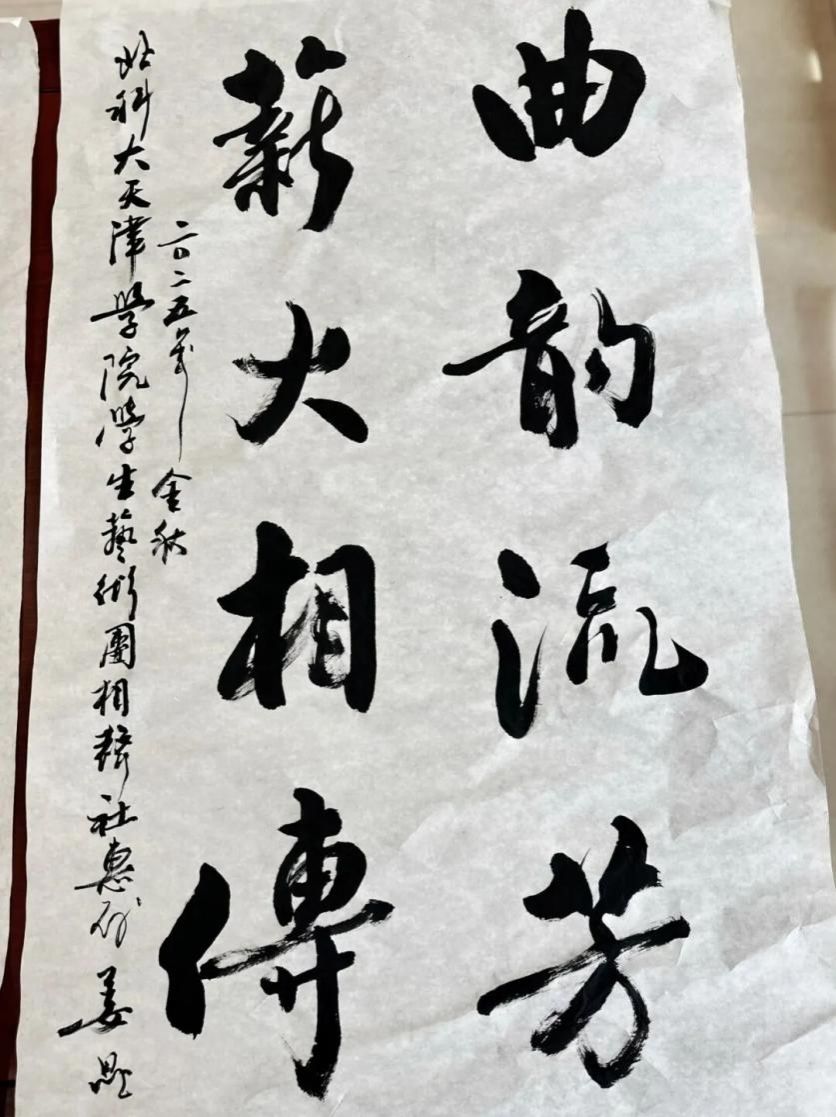 曲韵流芳
薪火相傳
二〇二五年金秋
北科大天津學院學生藝術團相聲社惠存
姜昆